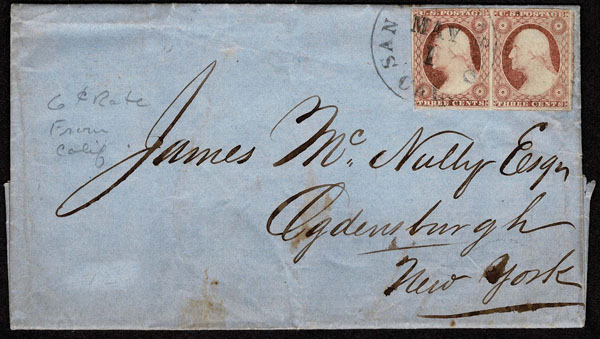 U.S. POSTAGE U.S. POSTAGE
THREE CENTS THREE CENTS
SAN
MAY
1
CAL
6¢ Rate
From
Calif
James Mc. Nully Esqr
Ogdensburgh
New York